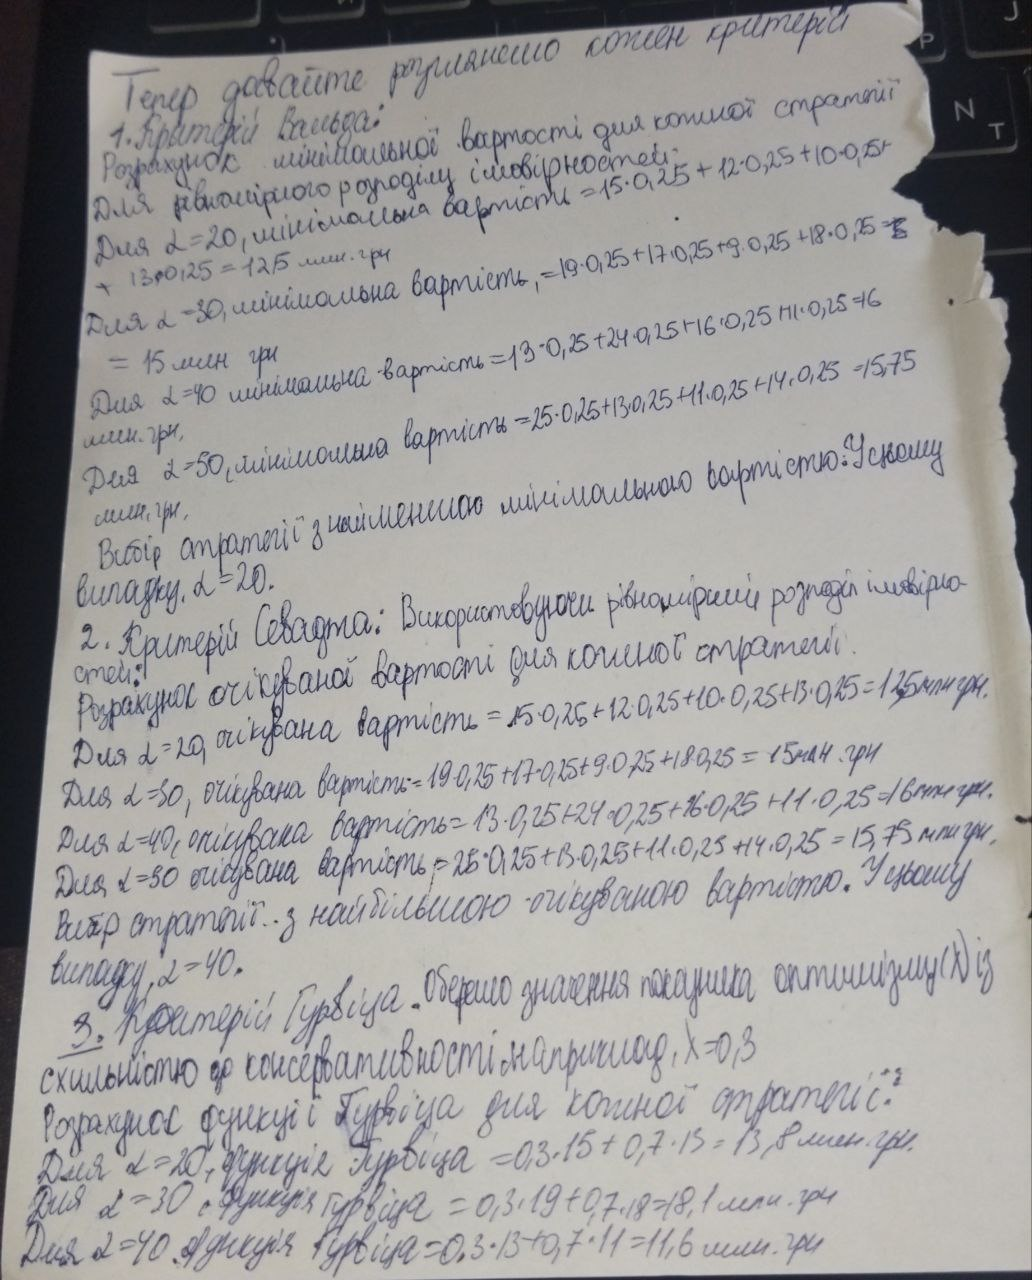 Тепер давайте розглянемо кожен критерій
1. Критерій Вальда:
Розрахунок мінімальної вартості для кожної стратегії
Для рівномірного розподілу імовірностей:
Для α=20, мінімальна вартість = 15·0,25 + 12·0,25 + 10·0,25+
+ 13·0,25 = 12,5 млн. грн
Для α=30, мінімальна вартість, =19·0,25+17·0,25+9·0,25+18·0,25=
= 15 млн грн
Для α=40 мінімальна вартість =13·0,25+24·0,25+16·0,25+11·0,25=16
млн.грн,
Для α=50, мінімальна вартість =25·0,25+13·0,25+11·0,25+14·0,25 =15,75
млн.грн,
Вибір стратегії з найменшою мінімальною вартістю: У цьому
випадку, α=20.
2. Критерій Севадта: Використовуючи рівномірний розподіл імовірно-
стей:
Розрахунок очікуваної вартості для кожної стратегії.
Для α=20, очікувана вартість = 15·0,25+12·0,25+10·0,25+13·0,25=12,5млн грн.
Для α=30, очікувана вартість=19·0,25+17·0,25+9·0,25+18·0,25 = 15млн.грн
Для α=40, очікувана вартість= 13·0,25+24·0,25+16·0,25 +11·0,25=16млн грн.
Для α=50 очікувана вартість,=25·0,25+13·0,25+11·0,25+14·0,25 = 15,75 млн грн,
Вибір стратегії.. з найбільшою очікуваною вартістю. У цьому
випадку, α=40.
3. Критерій Гурвіца. Оберемо значення показника оптимізму(X) із
схильністю до консервативності, наприклад, X=0,3
Розрахунок функції Гурвіца для кожної стратегії:
Для α=20, функція Гурвіца =0,3·15+0,7·13=13,8 млн.грн.
Для α=30, функція Гурвіца = 0,3·19+0,7·18=18,1 млн.грн
Для α=40 функція Гурвіца=0,3·13+0,7·11=11,6 млн.грн